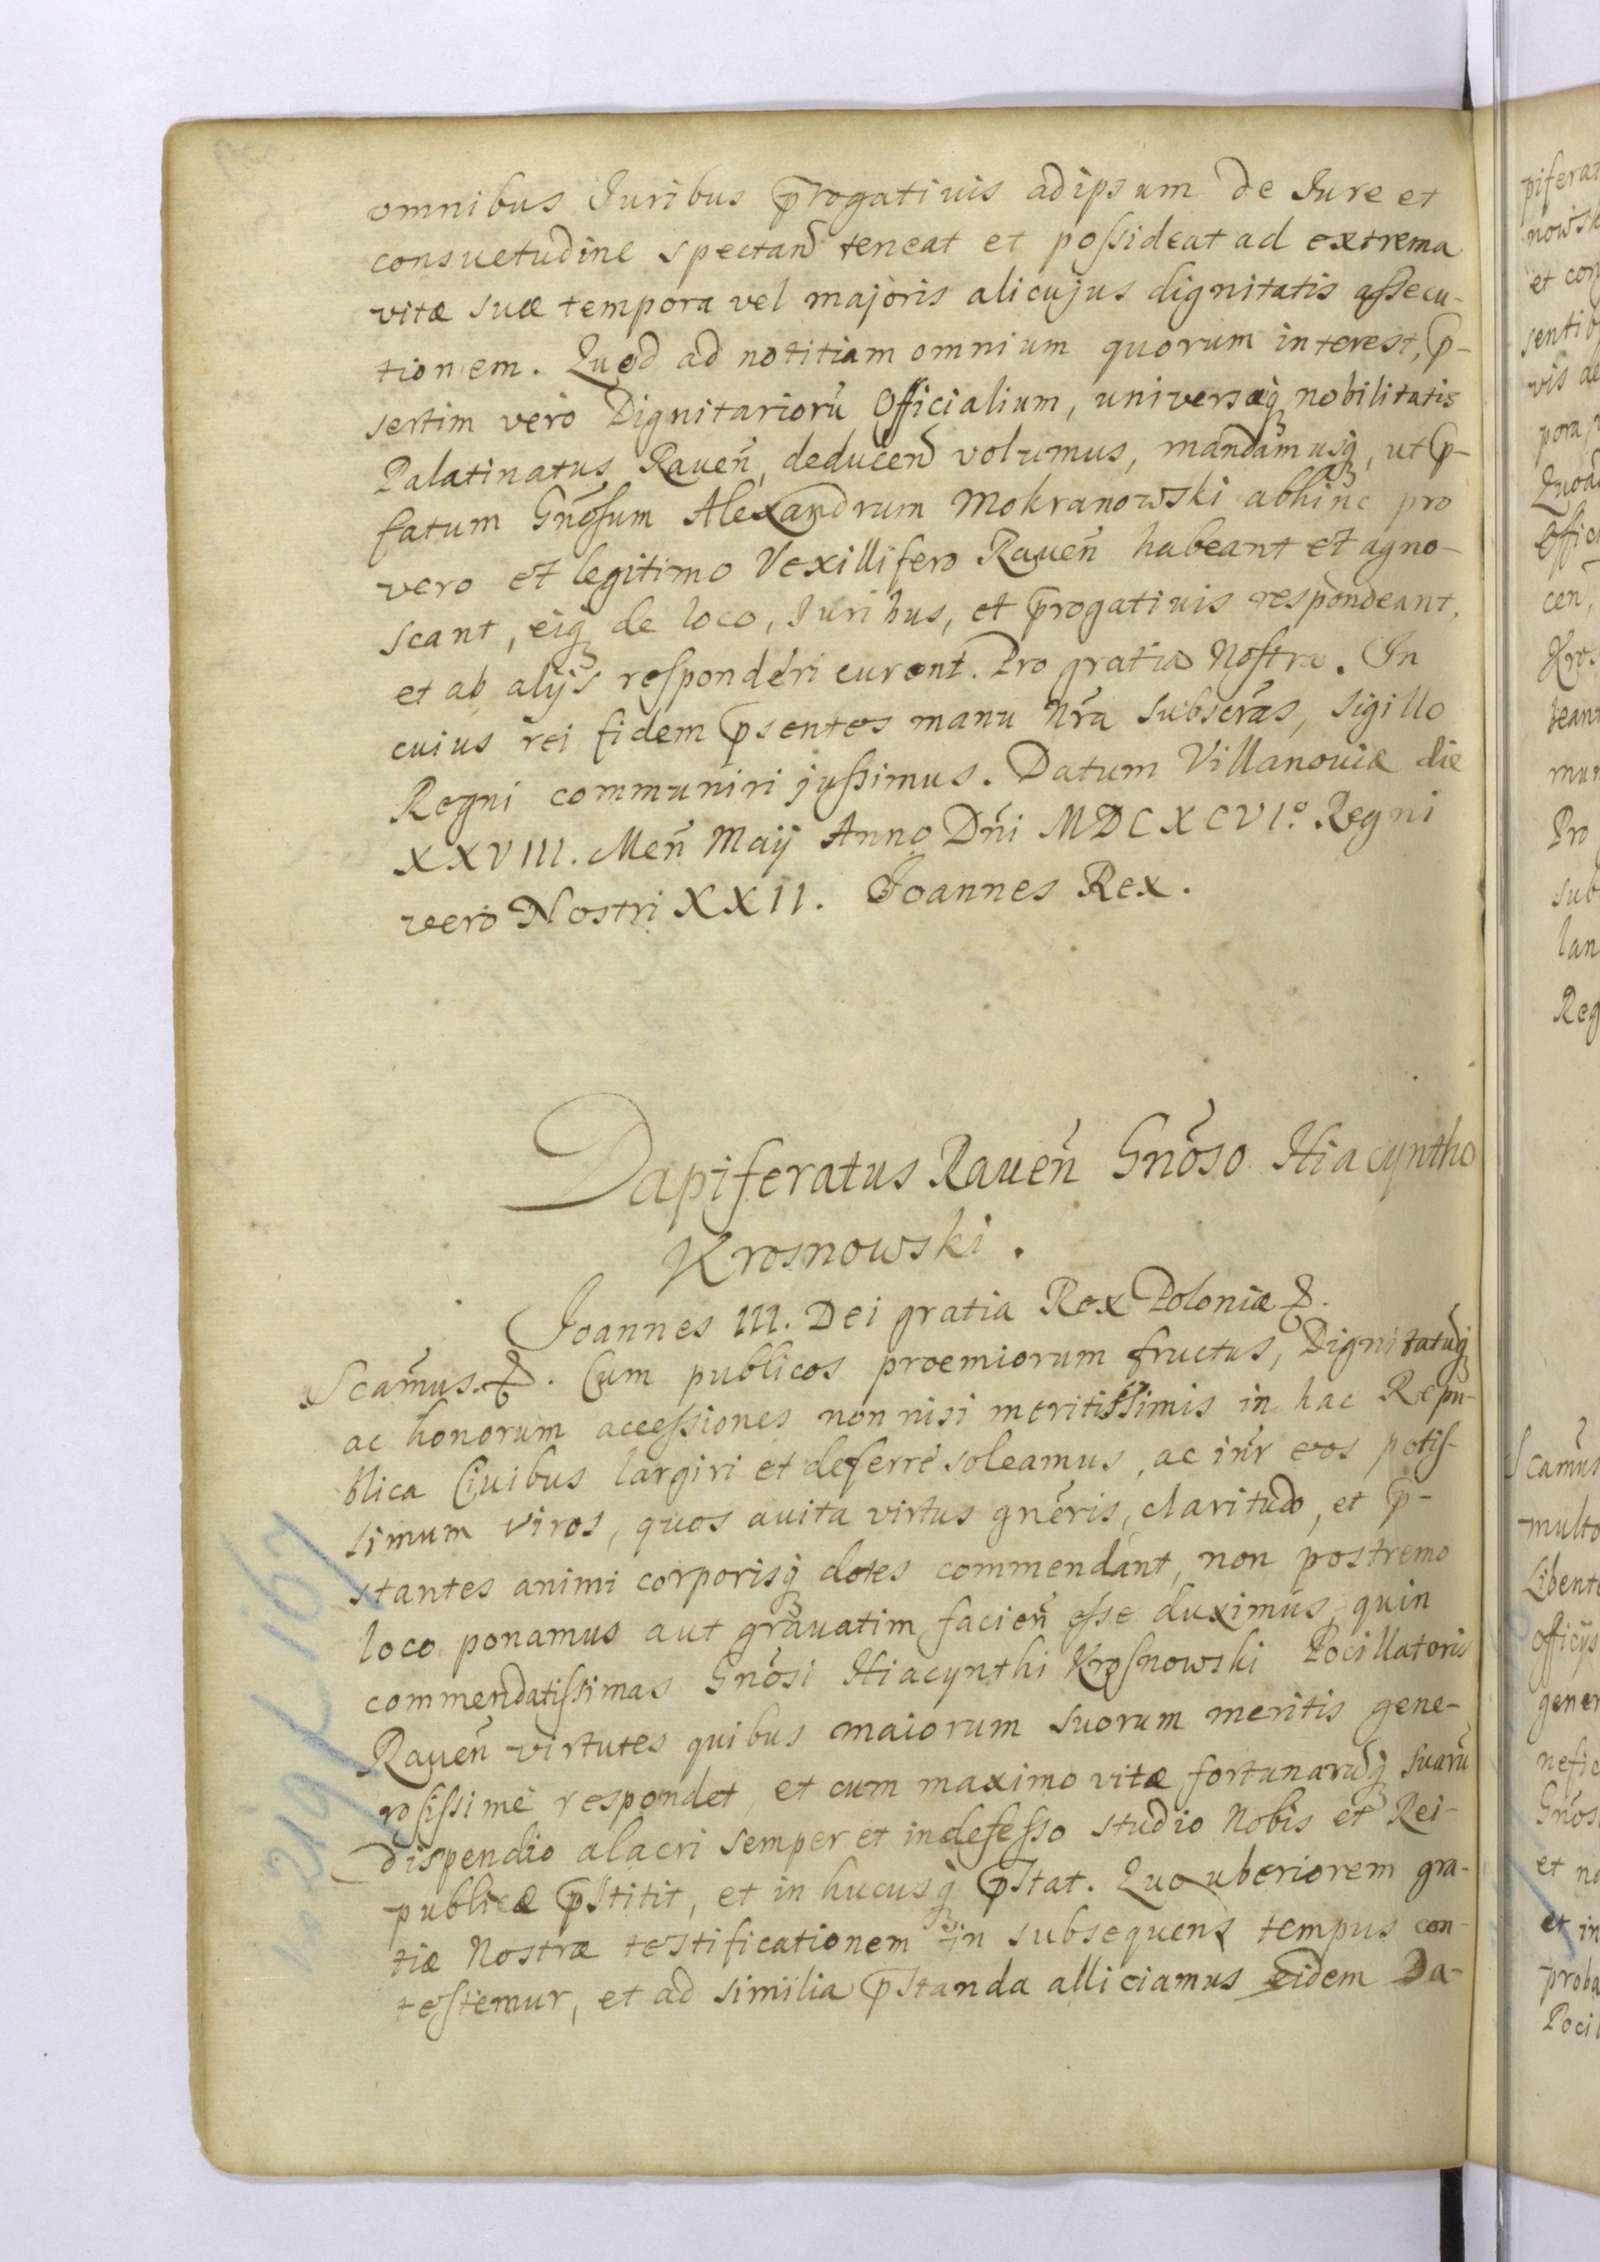 omnibus Iuribus p̄rogativis ad ipsum de Iure et
consuetudine spectan̄ teneat et possideat ad extrema
vitæ suæ tempora vel majoris alicujus dignitatis assecu-
tionem. Quod ad notitiam omnium quorum interest, p̄-
sertim vero Dignitariorū Officialium, universæq nobilitatis
Palatinatus Raueñ, deducen̄ volumus, mandamusq, ut p̄-
fatum Gnōsum Alexandrum Mokranowski abhinc pro
vero et legitimo Vexillifero Raueñ habeant et agno-
scant, eiq de loco, Iuribus, et p̄rogatiuis respondeant,
et ab alijs responderi curent. Pro gratia Nostra. In
cuius rei fidem p̄sentes manu Nr̄a subscr̄as, sigillo
Regni communiri jussimus. Datum Villanouiæ die
XXVIII. Meñ Maij Anno Dn̄i MDCXCVIo. Regni
vero Nostri XXII. Joannes Rex.
Dapiferatus Raueñ Gnōso Hiacyntho
Krosnowski.
Joannes III. Dei gratia Rex Poloniæ &.
Scam̄us. &. Cum publicos proemiorum fructus, Dignitatūq
ac honorum accessiones non nisi meritissimis in hac Repu-
blica Ciuibus largiri et deferre soleamus, ac inr̄ eos potis-
simum viros, quos auita virtus gnēris, claritudo, et p̄-
stantes animi corporisq dotes commendant, non postremo
loco ponamus aut grauatim facieñ esse duximus, quin
commendatissimas Gnōsi Hiacynthi Krosnowski Pocillatoris
Raueñ virtutes quibus maiorum suorum meritis gene-
rosissime respondet, et cum maximo vitæ fortunarūq suarū
dispendio alacri semper et indefesso studio Nobis et Rei-
publicæ p̄stitit, et in hucusq p̄stat. Quo uberiorem gra-
tiæ Nostræ testificationem in subsequens tempus con-
testemur, et ad similia p̄standa alliciamus eidem Da-
piferat
nowsk
et con
sentib
vis de
pora, v
Quod
Offici
cen,
Kros
beant
mun
Pro
sub
lan
Reg
Scam̄us
multo
Libent
officijs
gener
nefic
Gnōs
et no
et in
proba
Pocil